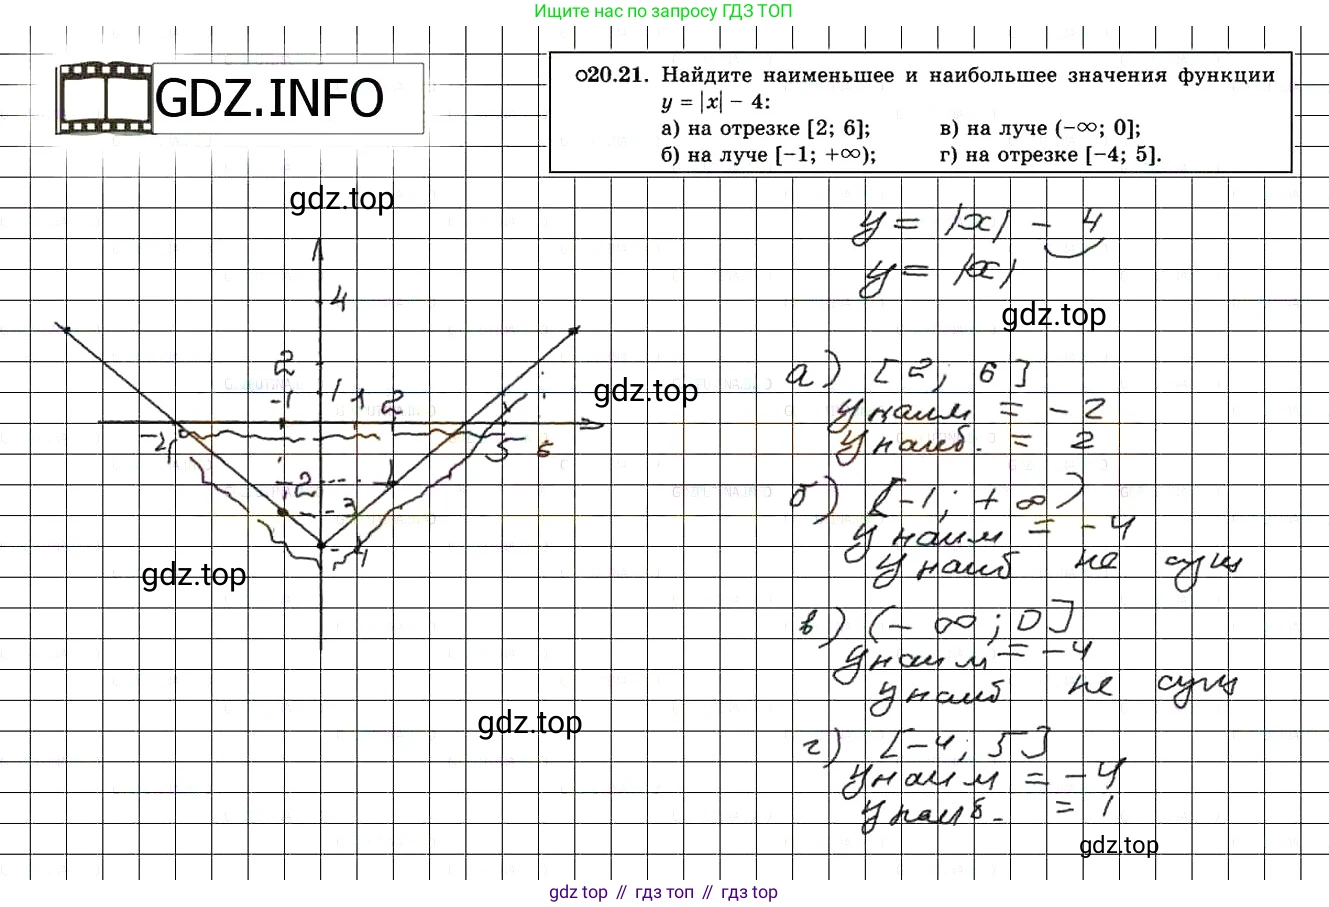 Ищите нас по запросу ГДЗ ТОП
GDZ.INFO
20.21. Найдите наименьшее и наибольшее значения функции
y = |x| − 4:
а) на отрезке [2; 6];
в) на луче (−∞; 0];
б) на луче [−1; +∞);
г) на отрезке [−4; 5].
gdz.top
y = |x| - 4
y = |x|
gdz.top
4
2
-1
1
1
2
gdz.top
-4
5
6
-2
-3
-4
gdz.top
а) [2; 6]
y наим = -2
y наиб. = 2
б) [-1; +∞)
y наим = -4
y наиб не сущ
в) (-∞; 0]
y наим = -4
y наиб не сущ
gdz.top
г) [-4; 5]
y наим = -4
y наиб. = 1
gdz.top
gdz top // гдз топ // gdz top